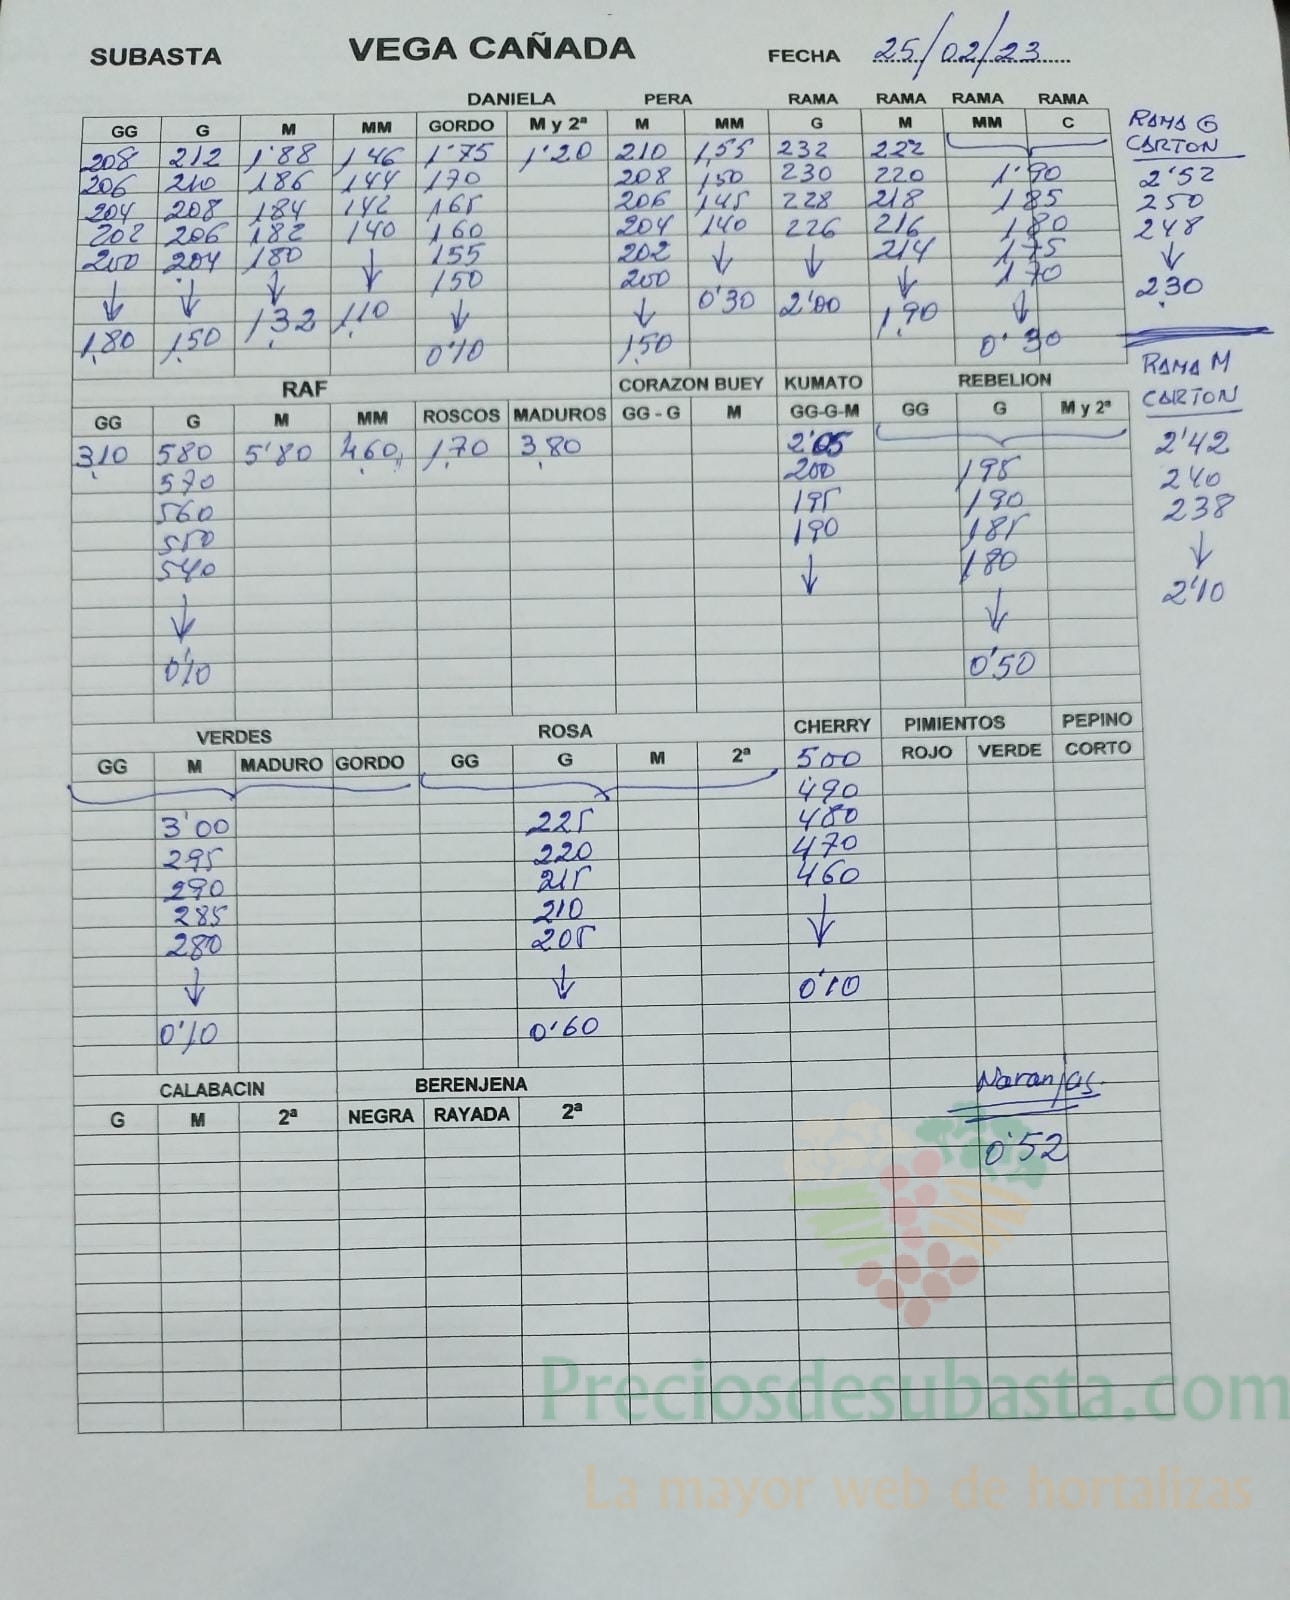 SUBASTA VEGA CAÑADA FECHA 25/02/23
DANIELA PERA RAMA RAMA RAMA RAMA
GG G M MM GORDO M y 2ª M MM G M MM C RAMA G
CARTON
208 212 1'88 1,46 1'75 1'20 210 1,55 232 222
206 210 186 144 170 208 150 230 220 1'90 2'52
204 208 184 142 165 206 145 228 218 185 250
202 206 182 140 160 204 140 226 216 180 248
200 204 180 ↓ 155 202 ↓ ↓ 214 175 ↓
↓ ↓ ↓ 150 200 ↓ 170 230
1,32 1,10 ↓ ↓ 0'30 2'00 1,90 ↓
1,80 1,50 0'10 1,50 0'30
RAMA M
RAF CORAZON BUEY KUMATO REBELION
CARTON
GG G M MM ROSCOS MADUROS GG - G M GG-G-M GG G M y 2ª
3,10 580 5'80 4,60 1,70 3,80 2'05 2'42
570 200 195 240
560 195 190 238
550 190 185 ↓
540 ↓ 180 2'10
↓ ↓
0'10 0'50
VERDES ROSA CHERRY PIMIENTOS PEPINO
GG M MADURO GORDO GG G M 2ª 500 ROJO VERDE CORTO
490
3'00 225 480
295 220 470
290 215 460
285 210 ↓
280 205
↓ ↓ 0'10
0'10 0'60
CALABACIN BERENJENA Naranjas
G M 2ª NEGRA RAYADA 2ª
0'52
Preciosdesubasta.com
La mayor web de hortalizas